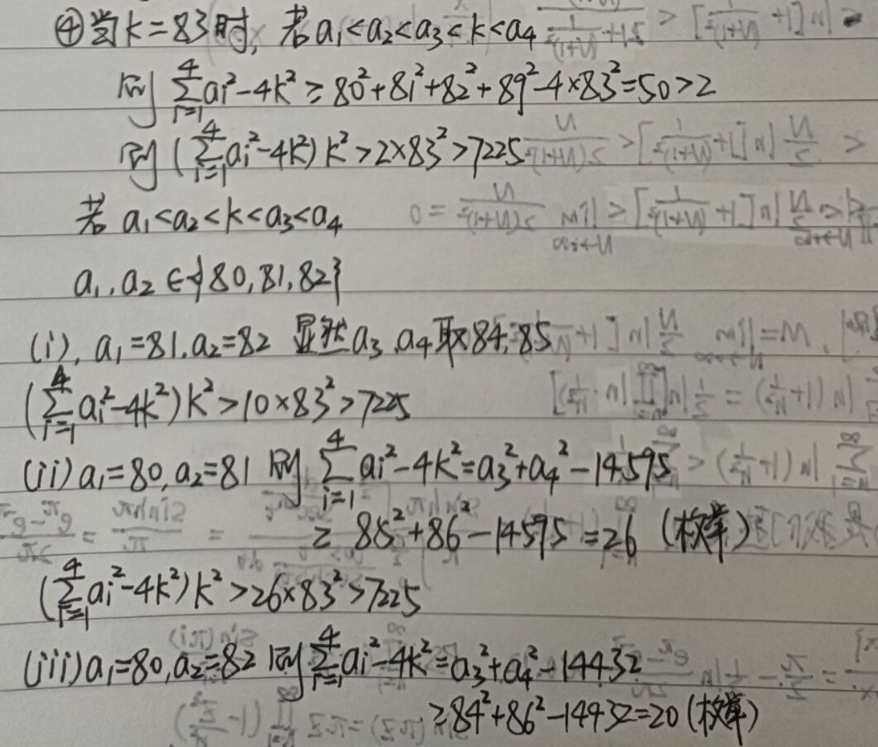 ④当k=83时, 若a₁<a₂<a₃<k<a₄
则 ∑_{i=1}^{4} aᵢ²-4k² ≥ 80²+81²+82²+89²-4×83²=50>2
则 (∑_{i=1}^{4} aᵢ²-4k²)k²>2×83²>7225
若 a₁<a₂<k<a₃<a₄
a₁,a₂∈{80,81,82}
(i), a₁=81,a₂=82 显然a₃,a₄取84,85
(∑_{i=1}^{4} aᵢ²-4k²)k²>10×83²>7225
(ii) a₁=80,a₂=81 则 ∑_{i=1}^{4} aᵢ²-4k²=a₃²+a₄²-14595
≥ 85²+86²-14595=26 (枚举)
(∑_{i=1}^{4} aᵢ²-4k²)k²>26×83²>7225
(iii) a₁=80,a₂=82 则 ∑_{i=1}^{4} aᵢ²-4k²=a₃²+a₄²-14432
≥84²+86²-14432=20 (枚举)